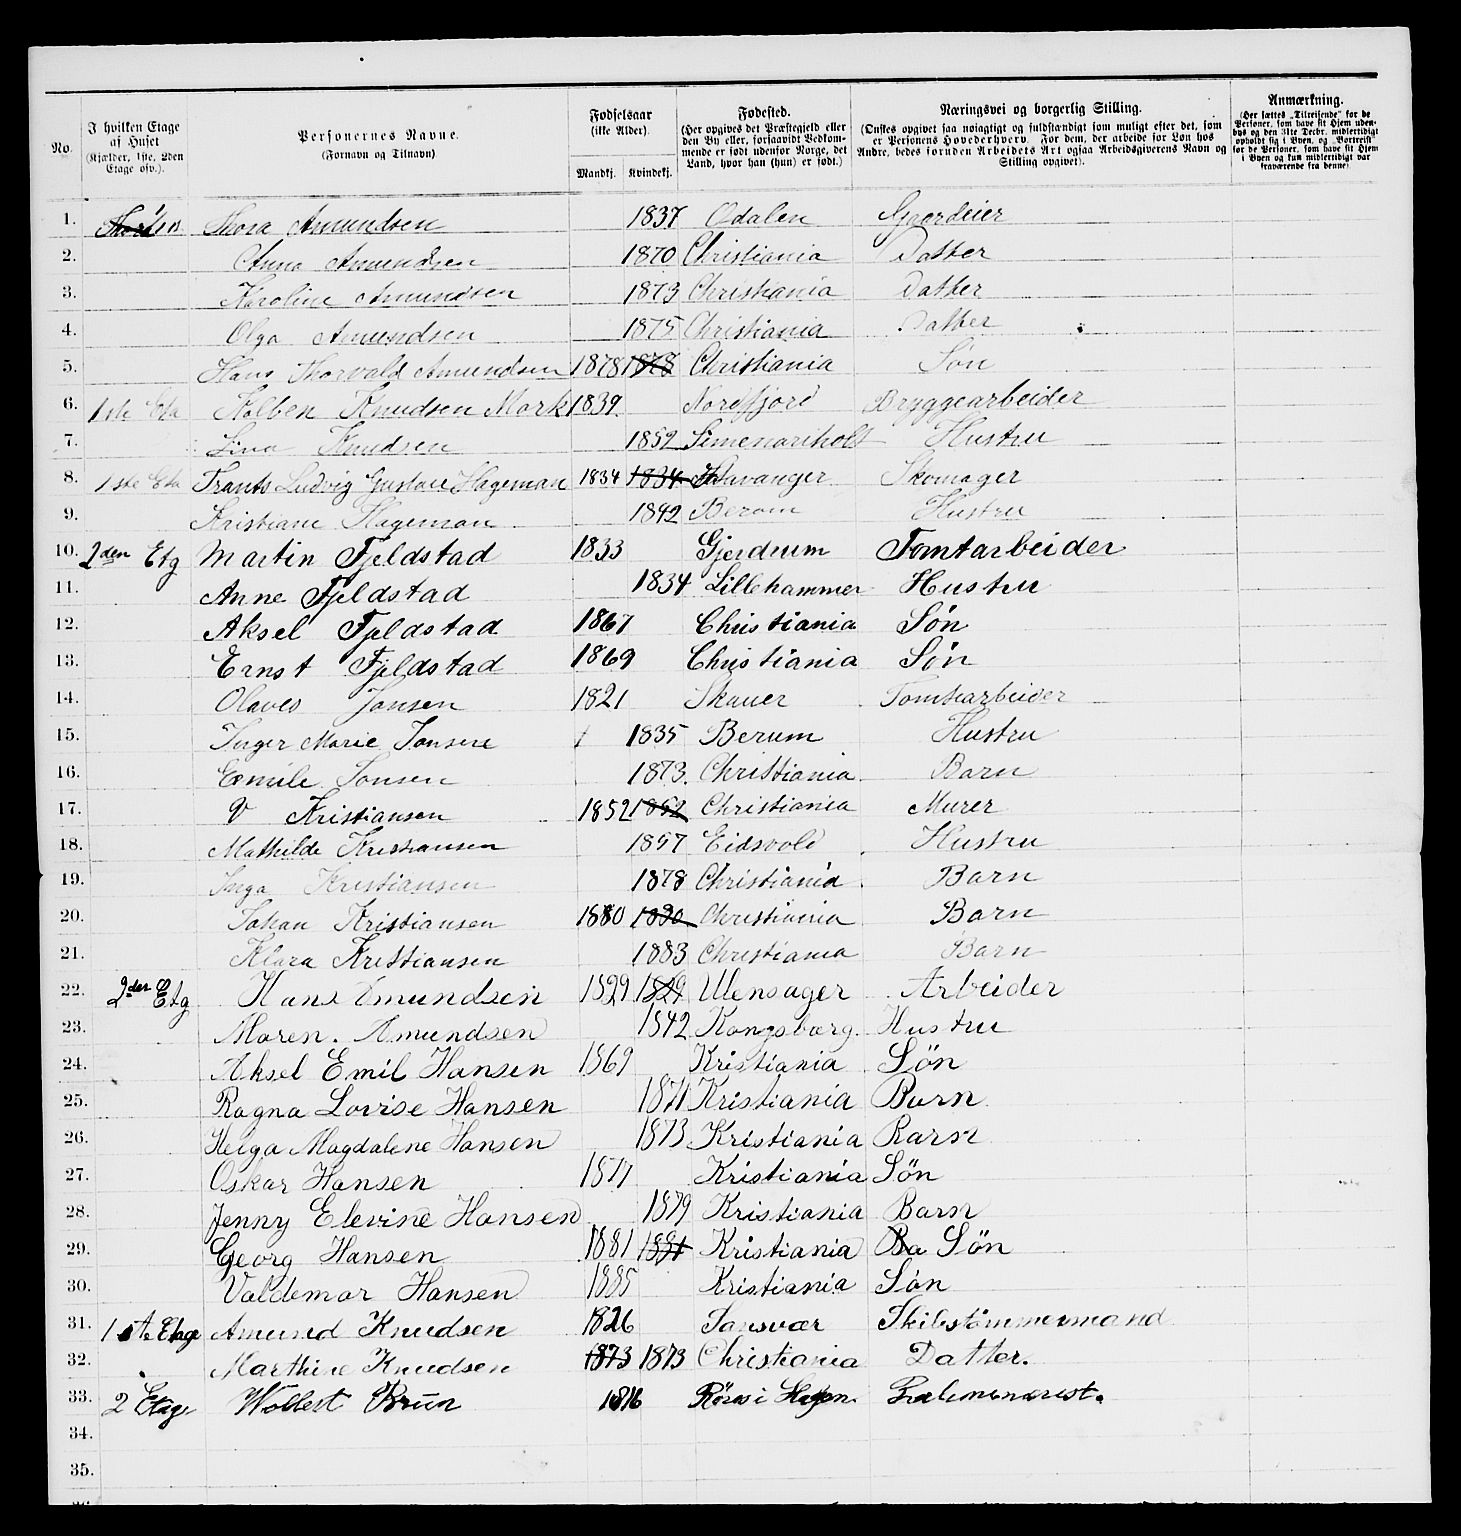 No. I hvilken Etage af Huset (Kjælder, 1ste, 2den Etage osv.). Personernes Navne. (Fornavn og Tilnavn) Fødselsaar (ikke Alder). Mandkj. Kvindekj. Fødested. (Her opgives det Præstegjeld eller den By eller, forsaavidt Vedkommende er født udenfor Norge, det Land, hvor han (hun) er født.) Næringsvei og borgerlig Stilling. (Ønskes opgivet saa nøiagtigt og fuldstændigt som muligt efter det, som er Personens Hovederhverv. For dem, der arbeide for Løn hos Andre, bedes foruden Arbeidets Art ogsaa Arbeidsgiverens Navn og Stilling opgivet). Anmærkning. (Her sættes „Tilreisende“ for de Personer, som have sit Hjem udenbys og den 31te Decbr. midlertidigt opholdt sig i Byen, og „Bortreist“ for de Personer, som have sit Hjem i Byen og kun midlertidigt var fraværende fra denne)
1. Thora Amundsen 1837 Odalen Gaardeier
2. Anna Amundsen 1870 Christiania Datter
3. Karoline Amundsen 1873 Christiania Datter
4. Olga Amundsen 1875 Christiania Datter
5. Hans Thorvald Amundsen 1878 1878 Christiania Søn
6. 1ste Eta Kolben Knudsen Mork 1839. Nordfjord Bryggearbeider
7. Lina Knudsen 1852 Hustru
8. 1ste Eta Frants Ludvig Gustave Hageman 1834 1834 Stavanger Skomager
9. Kristiane Hageman 1842 Berum Hustru
10. 2den Etg Martin Fjeldstad 1833 Gjerdrum Tomtarbeider
11. Anne Fjeldstad 1834 Lillehammer Hustru
12. Aksel Fjeldstad 1867 Christiania Søn
13. Ernst Fjeldstad 1869 Christiania Søn
14. Olaves Jonsen 1821 Skauer Tomtearbeider
15. Inger Marie Jonsene 1835 Berum Hustru
16. Emile Jonsen 1873. Christiania. Barn
17. Kristiansen 1852 1852 Christiania Murer
18. Mathilde Kristiansen 1857 Eidsvold Hustru
19. Inga Kristiansen 1878 Christiania Barn
20. Johan Kristiansen 1880 1880 Christiania Barn
21. Klara Kristiansen 1883 Christiania Barn
22. 2den Etg Hans Amundsen 1829 1829 Ulensager Arbeider
23. Maren. Amundsen 1842 Kongsberg. Hustru
24. Aksel Emil Hansen 1869 Kristiania Søn
25. Ragna Lovise Hansen 1871 Kristiania Barn
26. Helga Magdalene Hansen 1873 Kristiania Barn
27. Oskar Hansen 1877 Kristiania Søn
28. Jenny Elevine Hansen 1879 Kristiania Barn
29. Georg Hansen 1881 1881 Kristiania Ba Søn
30. Valdemar Hansen 1885 Kristiania Søn
31. 1ste Etage Amund Knudsen 1826 Sansvær Skibstømmermand
32. Marthine Knudsen 1873 1873 Christiania Datter.
33. 2 Etage Brun 1816 Røros i
34.
35.